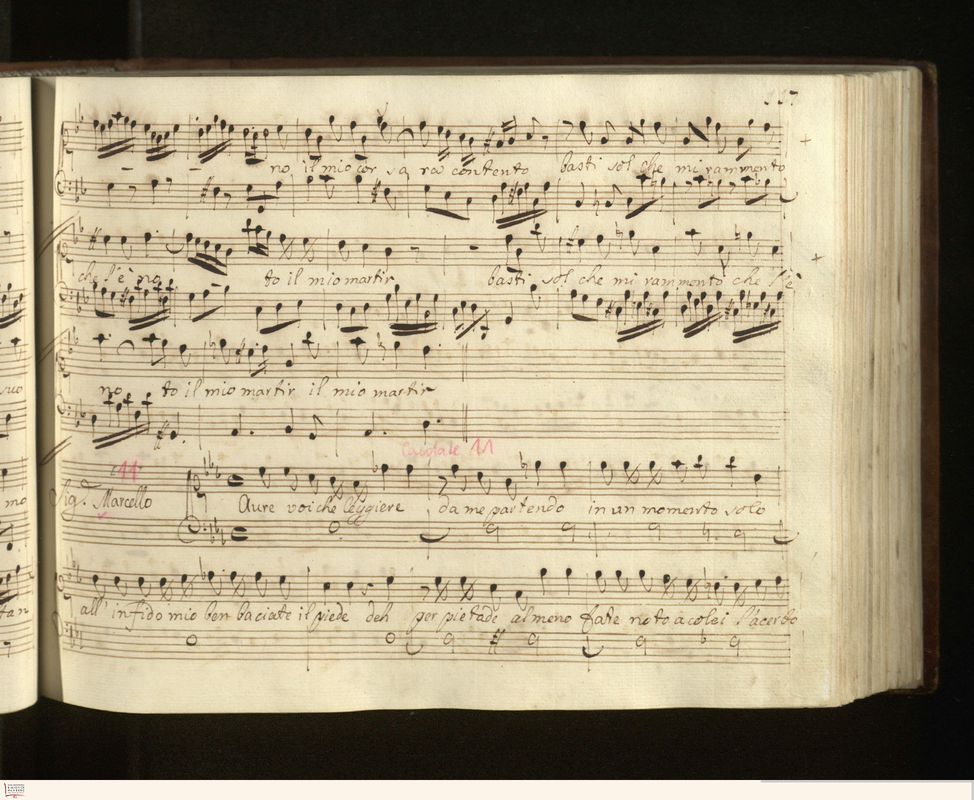 no il mio cor sa ra contento basti sol che mi rammento
che l'è no to il mio martir basti sol che mi rammento che l'è
no to il mio martir il mio martir
11
Cantate 11
Sig.r Marcello
Aure voi che leggiere da me partendo in un momento solo
all' infido mio ben baciate il piede deh per pietade almeno fate noto a colei l'acerbo